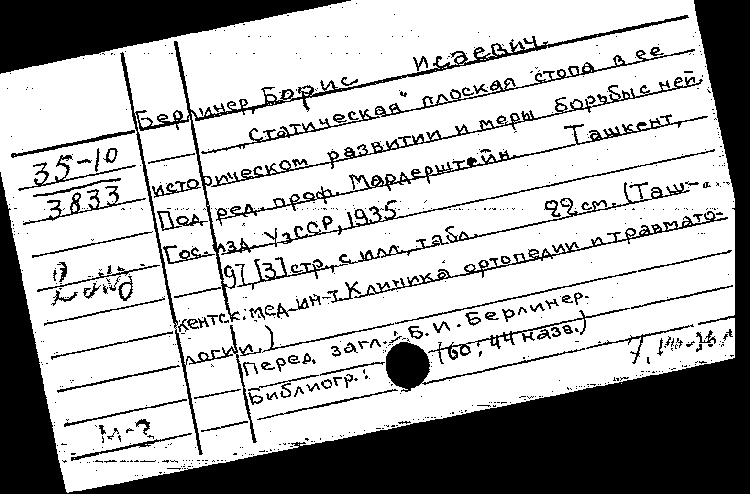 Берлинер, Борис Исаевич.
„Статическая" плоская стопа в ее
историческом развитии и меры борьбы с ней
Под. ред. проф. Мардерштейн. Ташкент,
Гос. изд. УзССР, 1935
97, [3] стр., с илл., табл. 22 см. (Таш-
кентск. мед. ин-т. Клиника ортопедии и травмато-
логии.)
Перед загл.: Б.И. Берлинер.
Библиогр.: (60; 44 назв.)
35-10
3833
М-2